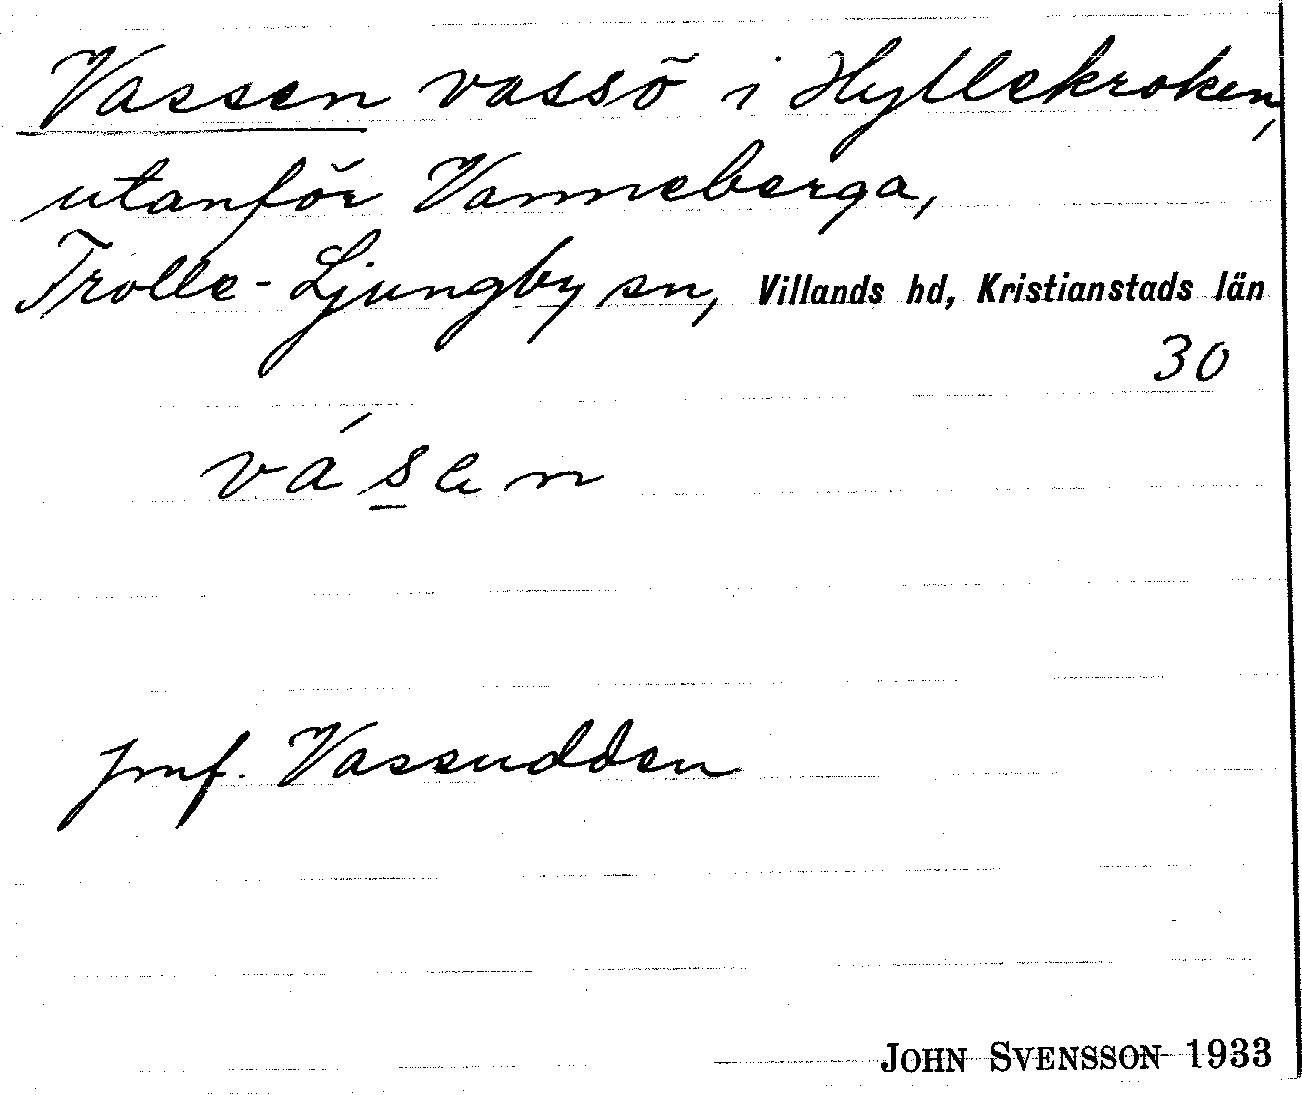 Vassen vassö i Hyllekroken,
utanför Vanneberga,
Trolle-Ljungby sn, Villands hd, Kristianstads län
30
vás̲en
jmf. Vassudden
JOHN SVENSSON 1933